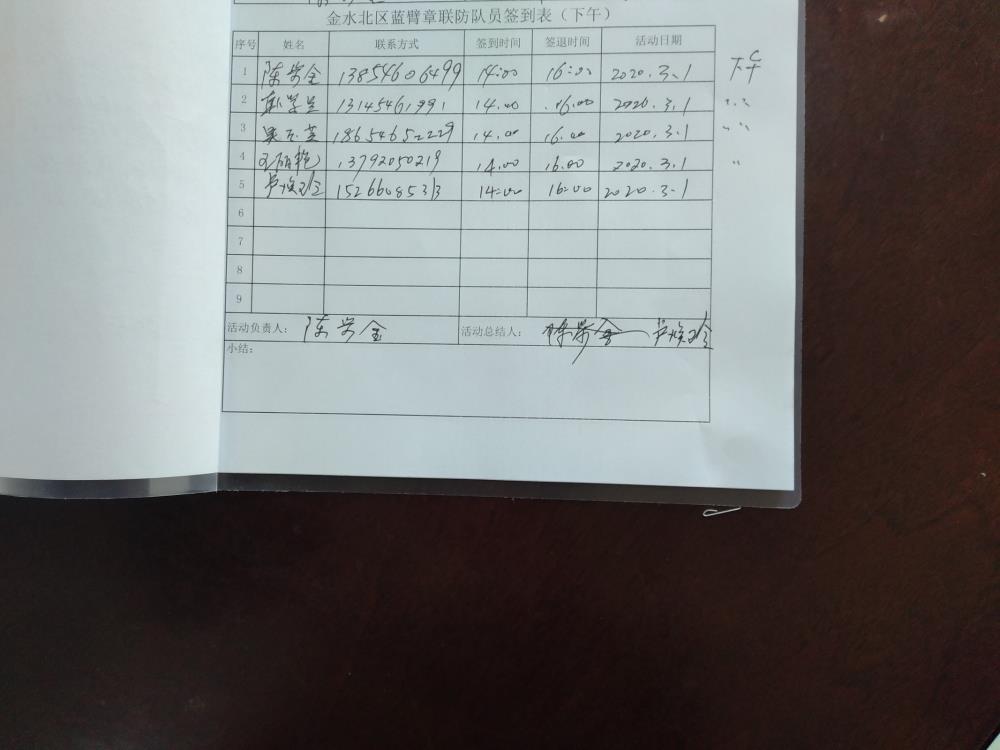 金水北区蓝臂章联防队员签到表（下午）
序号 姓名 联系方式 签到时间 签退时间 活动日期
1 陈学金 13854606499 14:00 16:00 2020.3.1 下午
2 14.00 16.00 2020.3.1 〃
3 18654652229 14.00 16.00 2020.3.1 〃
4 13792050219 14.00 16.00 2020.3.1 〃
5 15266085313 14:00 16:00 2020.3.1
6
7
8
9
活动负责人： 陈学金 活动总结人：
小结：